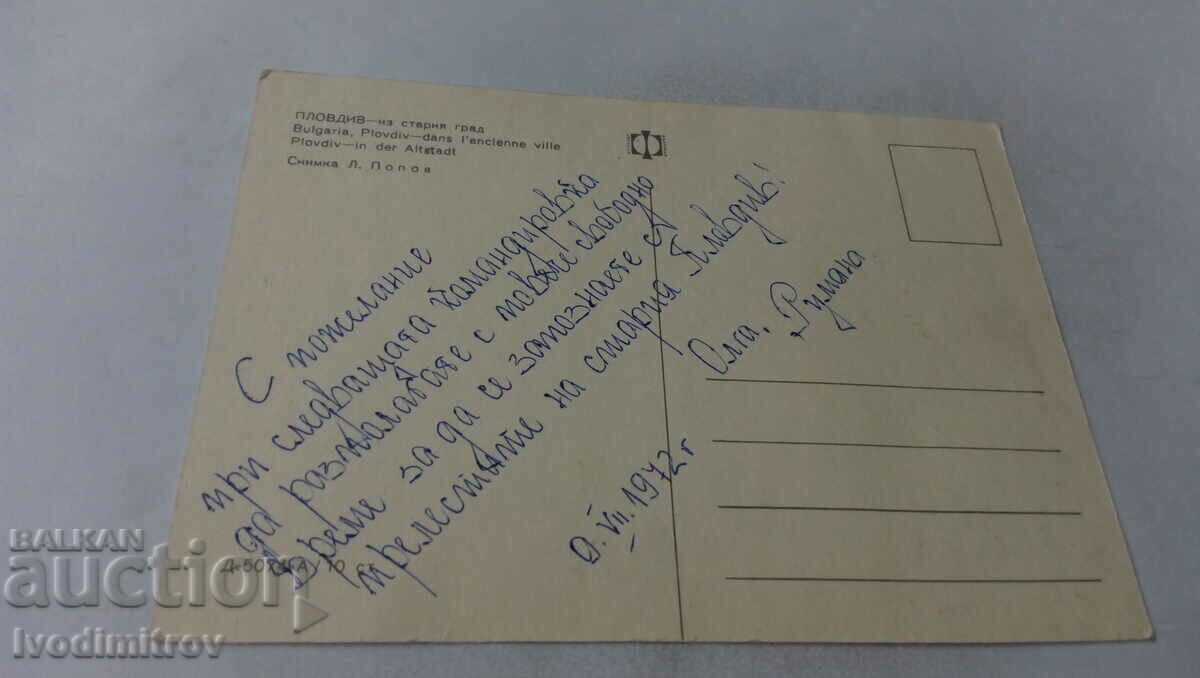 ПЛОВДИВ—из стария град
Bulgaria, Plovdiv—dans l'ancienne ville
Plovdiv—in der Altstadt
Снимка Л. Попов
С пожелание
при следващата командировка
да разполагате с повече свободно
време за да се запознаете с
прелестите на стария Пловдив!
Олга, Румяна
9. VII. 1972 г
BALKAN
auction
Ivodimitrov